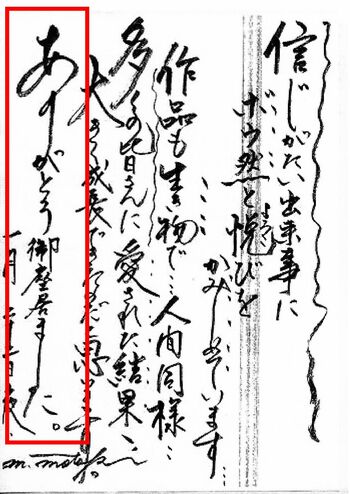 信じがたい出来事に
ボウ然と悦びを
かみしめています…
作品も生き物で…人間同様…
多くの皆さんに愛された結果…
大きく成長できたのだと思います
ありがとう御座居ました。
一月